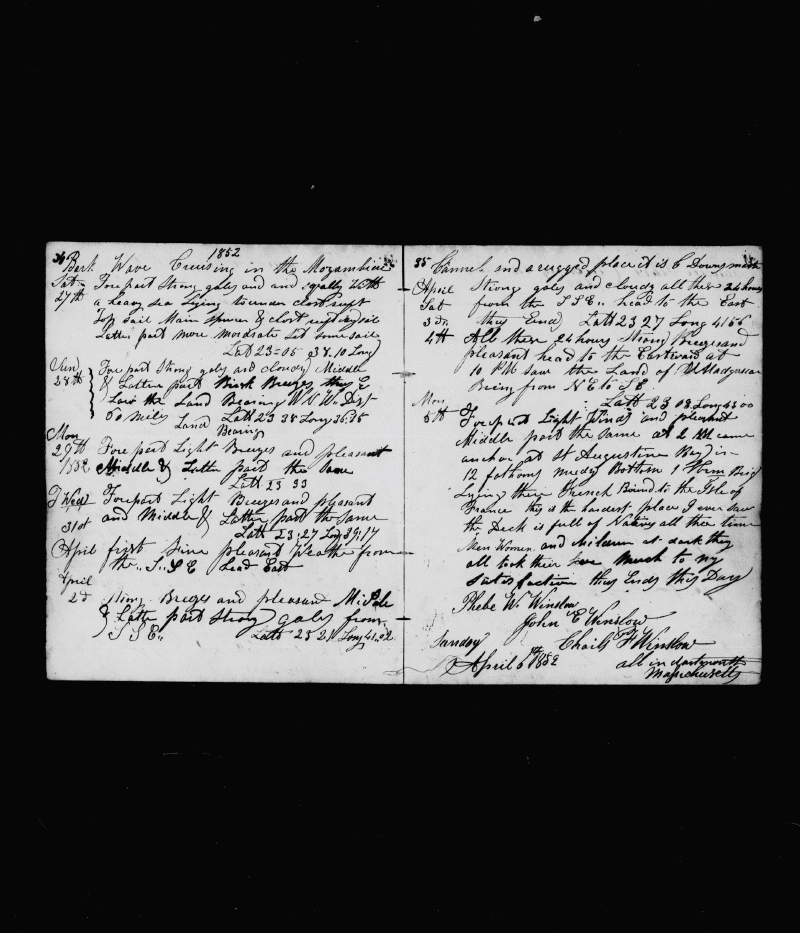 1852
Bark Wave Cruising in the Mozambiue
Sat Forepart Strong gales and and sqally With
27th a heavy sea Lying tounder clost reeft
Top sail Main spencer & clost reeft
Latter part more modrate Set some sail
Latt 23=05 38.10 Long
Sun Fore part Strong gales and cloudy Middle
28th & Latter part Brisk Breezes, they E
Saw the Land Bearing W N W Dist
60 miles Latt 23 38 Long 36:38
Land Bearing
Mon
29th Fore part Light Breezes and pleasant
1852 Middle & Latter part the Same
Latt 23 33
Wed Forepart Light Breezes and pleasant
31st and Middle & Latter part the Same
Latt 23:27 Long 39:17
April first fine pleasant Weather from
the S.S E Lead East
April
2d Strong Breezes and pleasant Midole
& Latter part Strong gales from
S S E Latt 23 21 Long 41:02
35 Cannel and a rugged place it is C Downs
April Strong gales and cloudy all these 24 hours
Sat from the S S E head to the East
3d they End Latt 23 27 Long 41 56
4th All these 24 hours Strong Breezes and
pleasant head to the Eastward at
10 PM saw the Land of Madgascar
Being from N E to S E
Latt 23 08 Long 43 00
Mon
5th Forepart Light Winds and pleasant
Middle part the same at 2 came
anchor at St Augustine Bay in
12 fathoms mudy Bottom 1 Brig
Lying there French Bound to the Isle of
France this is the hardest place I ever saw
the Deck is full of Natives all the time
Men Women and children at dark they
all took their Much to my
Satisfaction thus Ends this Day
Phebe W. Winslow
John E Winslow
Sunday Charls F Winslow
April 6th 1852 all in dartmouth
Massachusetts